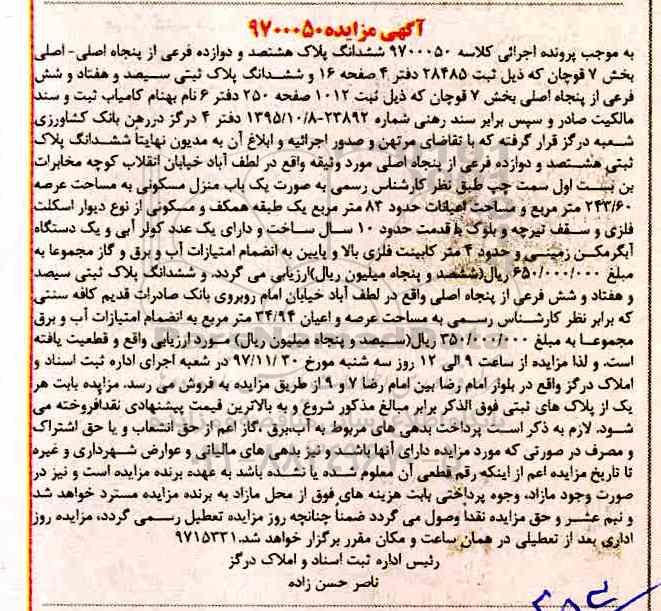 آگهی مزایده ۹۷۰۰۰۵۰
به موجب پرونده اجرائی کلاسه ۹۷۰۰۰۵۰ ششدانگ پلاک هشتصد و دوازده فرعی از پنجاه اصلی- اصلی
بخش ۷ قوچان که ذیل ثبت ۲۸۴۸۵ دفتر ۴ صفحه ۱۶ و ششدانگ پلاک ثبتی سیصد و هفتاد و شش
فرعی از پنجاه اصلی بخش ۷ قوچان که ذیل ثبت ۱۰۱۲ صفحه ۲۵۰ دفتر ۶ نام بهنام کامیاب ثبت و سند
مالکیت صادر و سپس برابر سند رهنی شماره ۲۳۸۹۲-۱۳۹۵/۱۰/۸ دفتر ۴ درگز دررهن بانک کشاورزی
شعبه درگز قرار گرفته که با تقاضای مرتهن و صدور اجرائیه و ابلاغ آن به مدیون نهایتاً ششدانگ پلاک
ثبتی هشتصد و دوازده فرعی از پنجاه اصلی مورد وثیقه واقع در لطف آباد خیابان انقلاب کوچه مخابرات
بن بست اول سمت چپ طبق نظر کارشناس رسمی به صورت یک باب منزل مسکونی به مساحت عرصه
۲۴۳/۶۰ متر مربع و مساحت اعیانات حدود ۸۴ متر مربع یک طبقه همکف و مسکونی از نوع دیوار اسکلت
فلزی و سقف تیرچه و بلوک با قدمت حدود ۱۰ سال ساخت و دارای یک عدد کولر آبی و یک دستگاه
آبگرمکن زمینی و حدود ۴ متر کابینت فلزی بالا و پایین به انضمام امتیازات آب و برق و گاز مجموعا به
مبلغ ۶۵۰/۰۰۰/۰۰۰ ریال(ششصد و پنجاه میلیون ریال)ارزیابی می گردد. و ششدانگ پلاک ثبتی سیصد
و هفتاد و شش فرعی از پنجاه اصلی واقع در لطف آباد خیابان امام روبروی بانک صادرات قدیم کافه سنتی
که برابر نظر کارشناس رسمی به مساحت عرصه و اعیان ۳۴/۹۴ متر مربع به انضمام امتیازات آب و برق
مجموعا به مبلغ ۳۵۰/۰۰۰/۰۰۰ ریال(سیصد و پنجاه میلیون ریال) مورد ارزیابی واقع و قطعیت یافته
است. و لذا مزایده از ساعت ۹ الی ۱۲ روز سه شنبه مورخ ۹۷/۱۱/۳۰ در شعبه اجرای اداره ثبت اسناد و
املاک درگز واقع در بلوار امام رضا بین امام رضا ۷ و ۹ از طریق مزایده به فروش می رسد. مزایده بابت هر
یک از پلاک های ثبتی فوق الذکر برابر مبالغ مذکور شروع و به بالاترین قیمت پیشنهادی نقدافروخته می
شود. لازم به ذکر است پرداخت بدهی های مربوط به آب،برق ،گاز اعم از حق انشعاب و یا حق اشتراک
و مصرف در صورتی که مورد مزایده دارای آنها باشد و نیز بدهی های مالیاتی و عوارض شهرداری و غیره
تا تاریخ مزایده اعم از اینکه رقم قطعی آن معلوم شده یا نشده باشد به عهده برنده مزایده است و نیز در
صورت وجود مازاد، وجوه پرداختی بابت هزینه های فوق از محل مازاد به برنده مزایده مسترد خواهد شد
و نیم عشر و حق مزایده نقداً وصول می گردد ضمناً چنانچه روز مزایده تعطیل رسمی گردد، مزایده روز
اداری بعد از تعطیلی در همان ساعت و مکان مقرر برگزار خواهد شد.۹۷۱۵۳۳۱
رئیس اداره ثبت اسناد و املاک درگز
ناصر حسن زاده